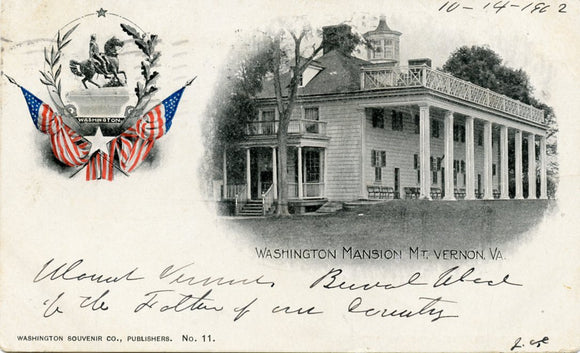 10-14-1902
WASHINGTON
WASHINGTON MANSION MT. VERNON, VA.
Mount Vernon, Burial Place
of the Father of our Country
WASHINGTON SOUVENIR CO., PUBLISHERS. No. 11.